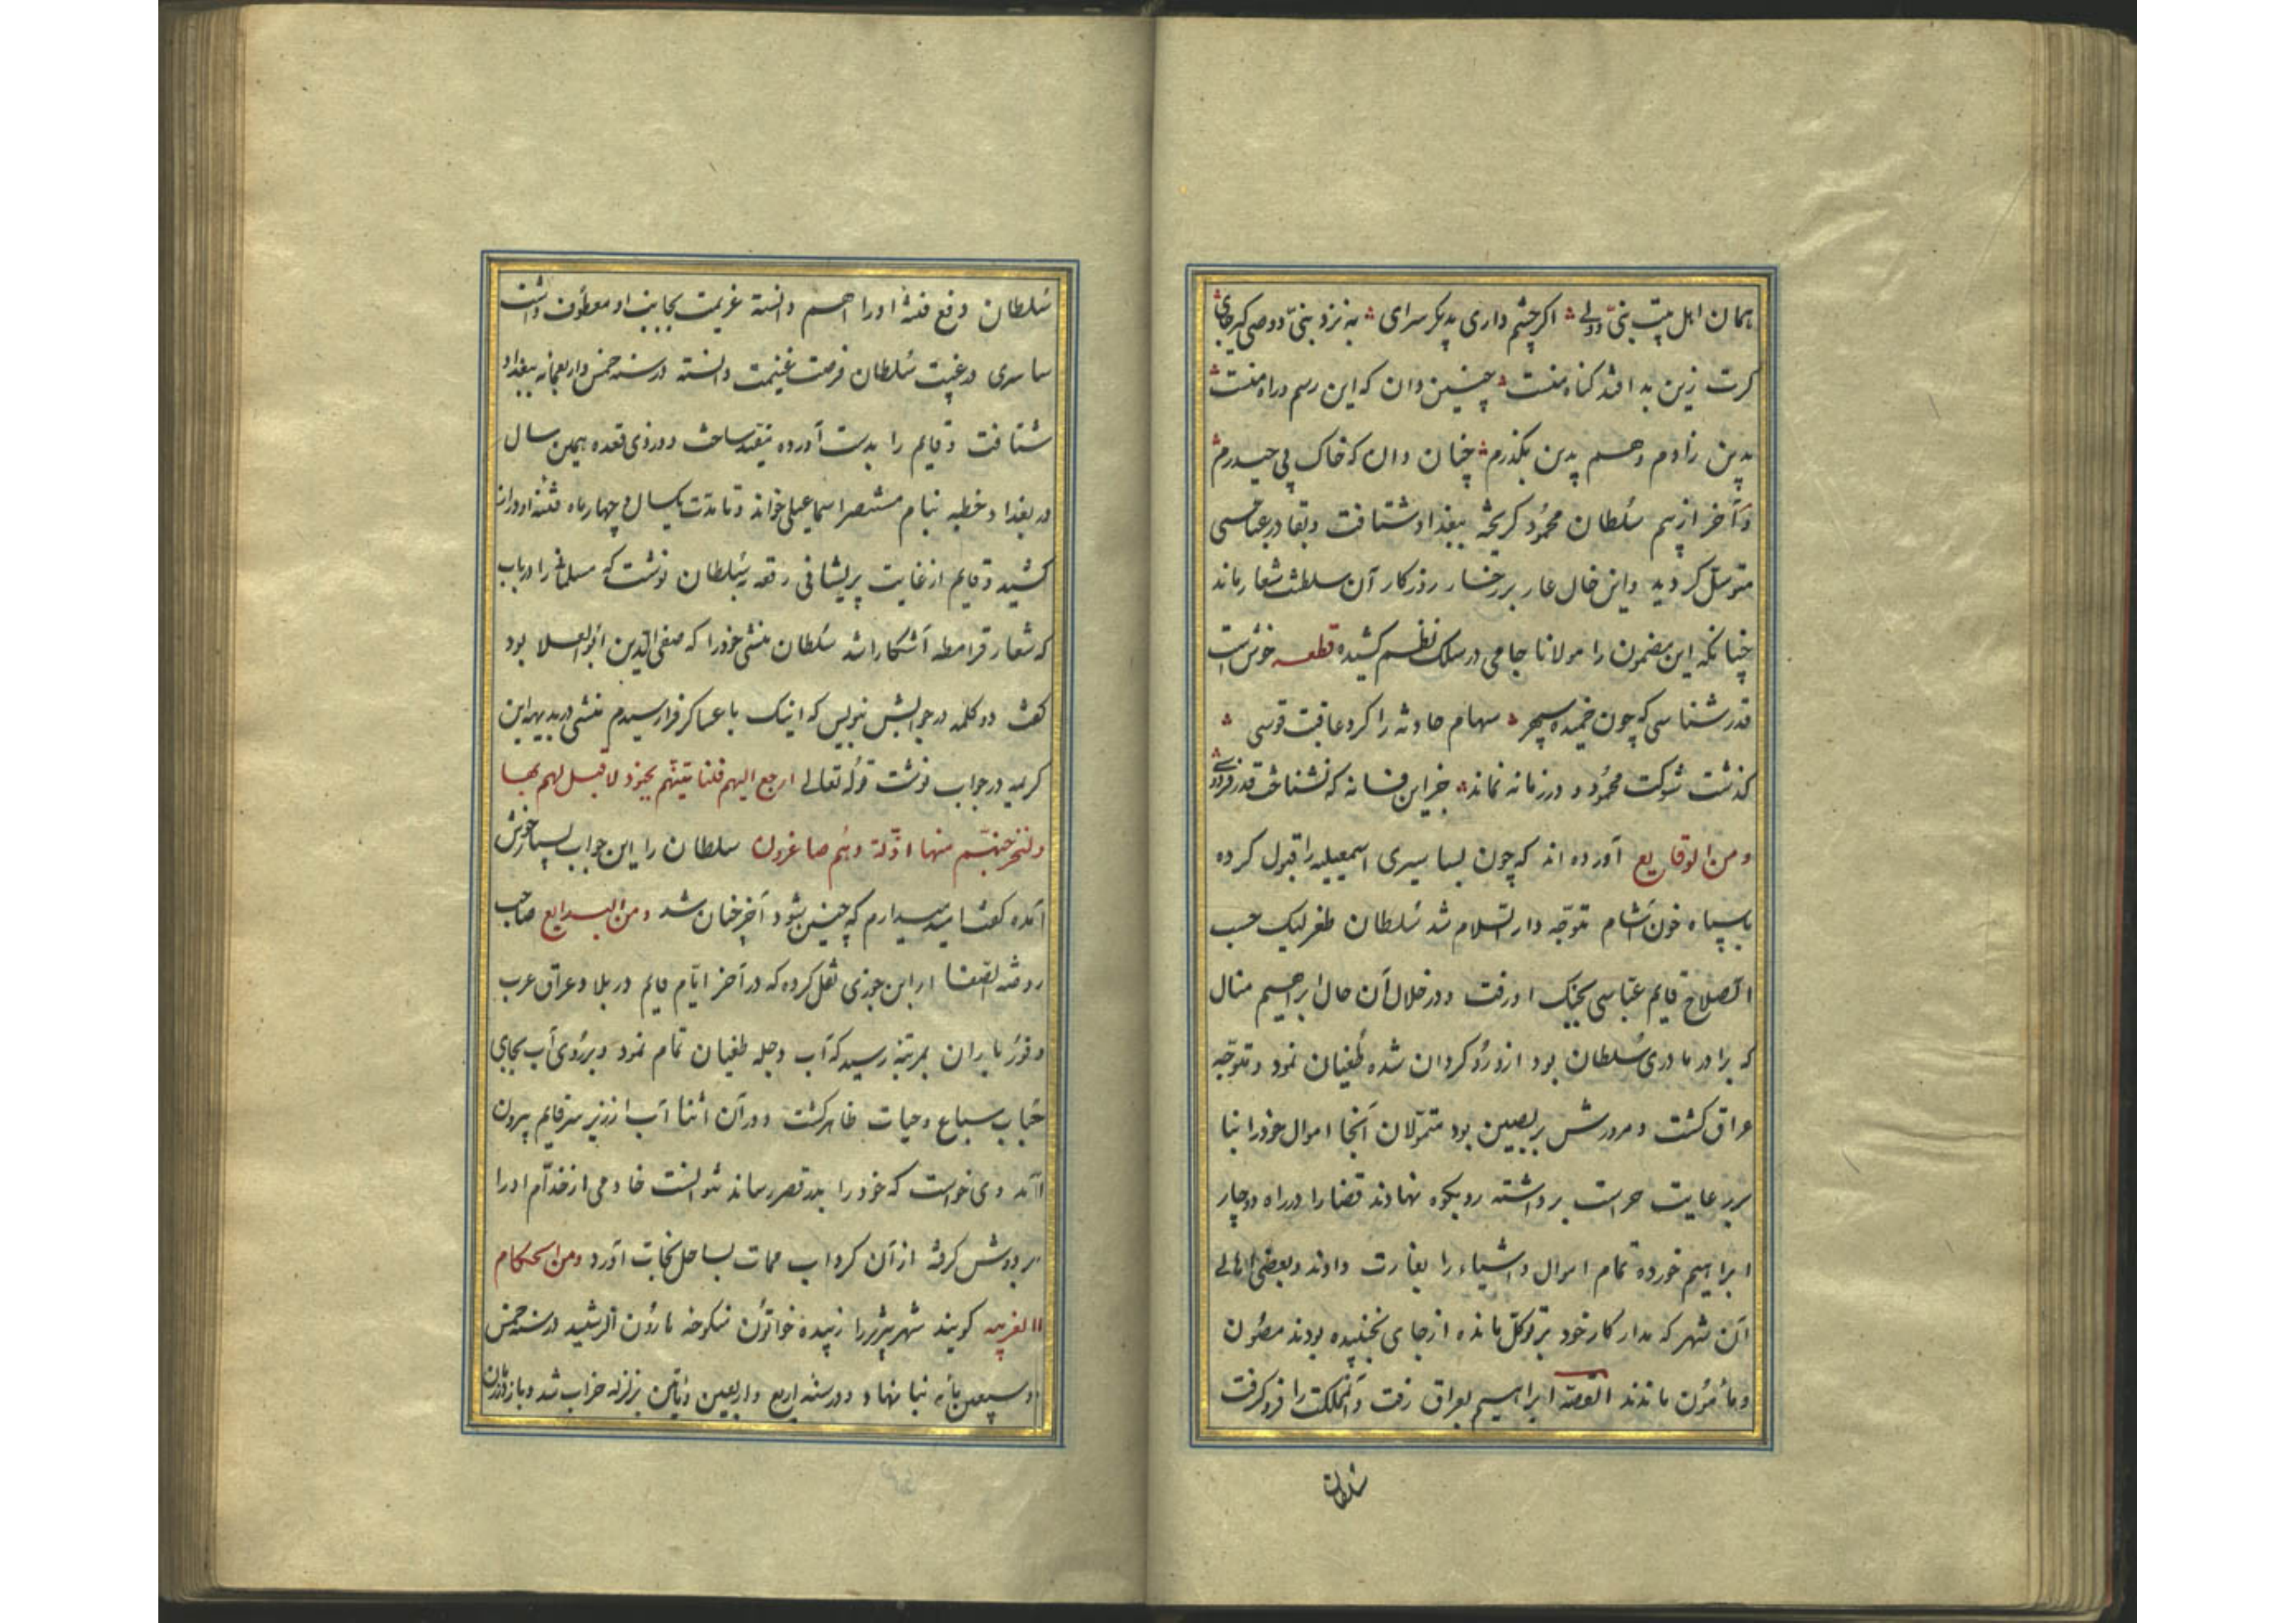 همان اهل بیت نبی و ولی ؞ اکر چشم داری بدیکر سرای ؞ به نزد نبی و وصی کیر جای ؞
کرت زین بد افتد کناه منست ؞ چنین دان که این رسم و راه منست ؞
بدین زادم و هم بدین بکذرم ؞ چنان دان که خاک پی حیدرم ؞
و آخر از بیم سلطان محمود کریخته ببغداد شتافت و بقادر عباسی
متوسل کردید و این خال عار بر رخسار روزکار آن سلطنت شعار ماند
چنانکه این مضمون را مولانا جامی در سلک نظم کشیده قطعه خوش است
قدر شناسی که چون خمیده سپهر ؞ سهام حادثه را کرد عاقبت قوسی ؞
کذشت شوکت محمود و در زمانه نماند ؞ جز این فسانه که نشناخت قدر فردوسی ؞
و من الوقایع آورده اند که چون بساسیری اسمعیلیه را قبول کرده
با سپاه خون آشام متوجه دار السلام شد سلطان طغرلبک حسب
الصلاح قایم عباسی بجنک او رفت و در خلال آن حال ابراهیم منال
که برادر مادری سلطان بود ازو رو کردان شده طغیان نمود و متوجه
عراق کشت و مرورش بر نصیبین بود متمولان آنجا اموال خود را بنا
بر رعایت حراست برداشته رو بکوه نهادند قضا را در راه دوچار
ابراهیم خورده تمام اموال و اشیاء را بغارت دادند و بعضی اهالی
آن شهر که مدار کار خود بر توکل مانده از جای نجنبیده بودند مصون
و مأمون ماندند القصه ابراهیم بعراق رفت و آن مملکت را فرو کرفت
سلطان
سلطان دفع فتنه او را اهم دانسته عزیمت بجانب او معطوف داشت
بساسیری در غیبت سلطان فرصت غنیمت دانسته در سنه خمس و اربعمائه ببغداد
شتافت و قایم را بدست آورده مقید ساخت و در ذی قعده همین سال
در بغداد خطبه بنام مستنصر اسماعیلی خواند و تا مدت یکسال و چهار ماه فتنه او در ان
کشید و قایم از غایت پریشانی رقعه به سلطان نوشت که مسلمانی را دریاب
که شعار قرامطه آشکارا شد سلطان منشی خود را که صفی الدین ابو العلا بود
کفت دو کلمه در جوابش بنویس که اینک با عساکر فرا رسیدم منشی در بدیهه این
کریمه در جواب نوشت قوله تعالی ارجع الیهم فلنأتینهم بجنود لا قبل لهم بها
و لنخرجنهم منها اذلة و هم صاغرون سلطان را این جواب بسیار خوش
آمده کفت امیدوارم که چنین شود آخر چنان شد و من البدایع صاحب
روضة الصفا از ابن جوزی نقل کرده که در آخر ایام قایم در بلاد عراق عرب
وفور باران بمرتبه رسید که آب دجله طغیان تمام نمود و بر روی آب بجای
حباب سباع و حیات ظاهر کشت و در آن اثنا آب از زیر سریر قایم بیرون
آمد وی خواست که خود را بدر قصر رساند نتوانست خادمی از خدام او را
بر دوش کرفته از آن کرداب ممات بساحل نجات آورد و من الحکام
الغریبه کویند شهر تبریز را زبیده خواتون منکوحه هارون الرشید در سنه خمس
و سبعین مأیه بنا نهاد و در سنه اربع و اربعین و مأتین بزلزله خراب شد و باز در آن